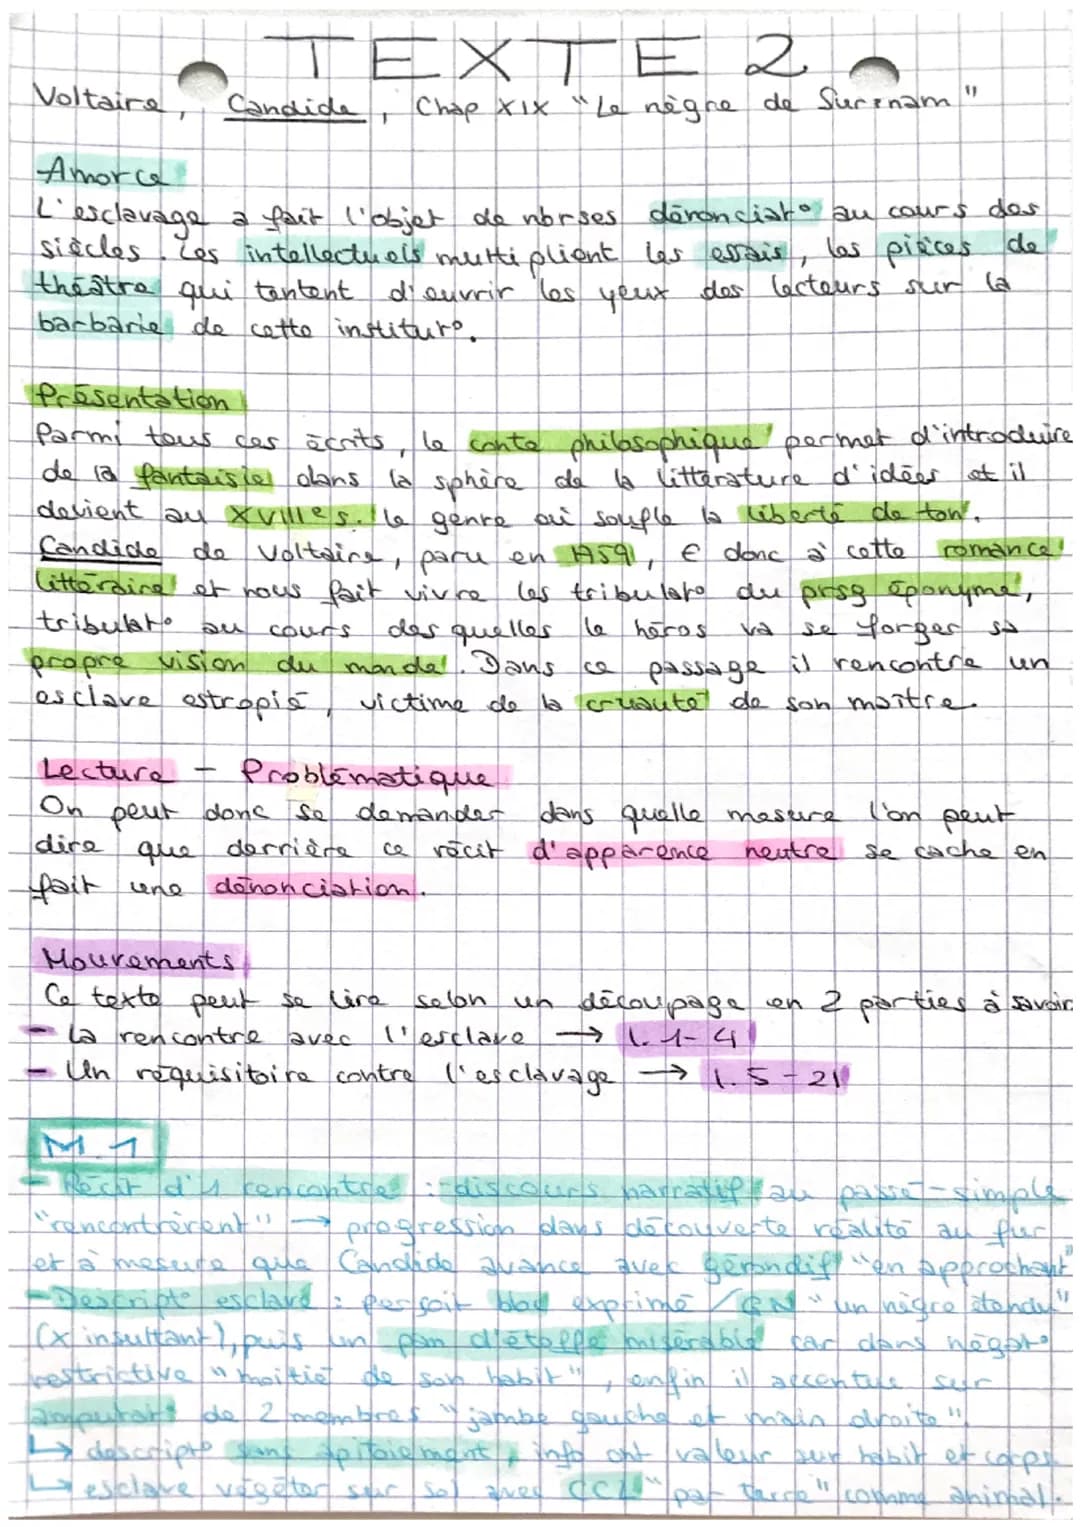 TEXTE 2
Voltaire, Candide, Chap XIX "Le nègre de Surinam"
Amorce
L'esclavage a fait l'objet de nbrses dénonciat° au cours des
siècles. Les intellectuels multiplient les essais, les pièces de
théâtre qui tentent d'ouvrir les yeux des lecteurs sur la
barbarie de cette institut°.
Présentation
Parmi tous ces écrits, le conte philosophique permet d'introduire
de la fantaisie dans la sphère de la littérature d'idées et il
devient au XVIIIes. le genre où soufle la liberté de ton.
Candide de Voltaire, paru en 1759, € donc à cette romance
littéraire et nous fait vivre les tribulat° du prsg éponyme,
tribulat° au cours des quelles le héros va se forger sa
propre vision du monde. Dans ce passage il rencontre un
esclave estropié, victime de la cruauté de son maître.
Lecture - Problématique
On peut donc se demander dans quelle mesure l'on peut
dire que derrière ce récit d'apparence neutre se cache en
fait une dénonciation.
Mouvements
Ce texte peut se lire selon un découpage en 2 parties à savoir
- La rencontre avec l'esclave → l. 1-4
- Un réquisitoire contre l'esclavage → l. 5-21
M.1
- Récit d'1 rencontre : discours narratif au passé-simple
"rencontrèrent" → progression dans découverte réalité au fur
et à mesure que Candide avance avec gérondif "en approchant"
- Descript° esclave : perçoit exprimé / GN "un nègre étendu"
(x insultant), puis un pan d'étoffe misérable car dans négat°
restrictive "moitié de son habit", enfin il accentue sur
amputat° de 2 membres "jambe gauche et main droite"
↳ descript° sans apitoiement, info ont valeur sur habit et corps
↳ esclave végéter sur sol avec CCL "par terre" comme animal.